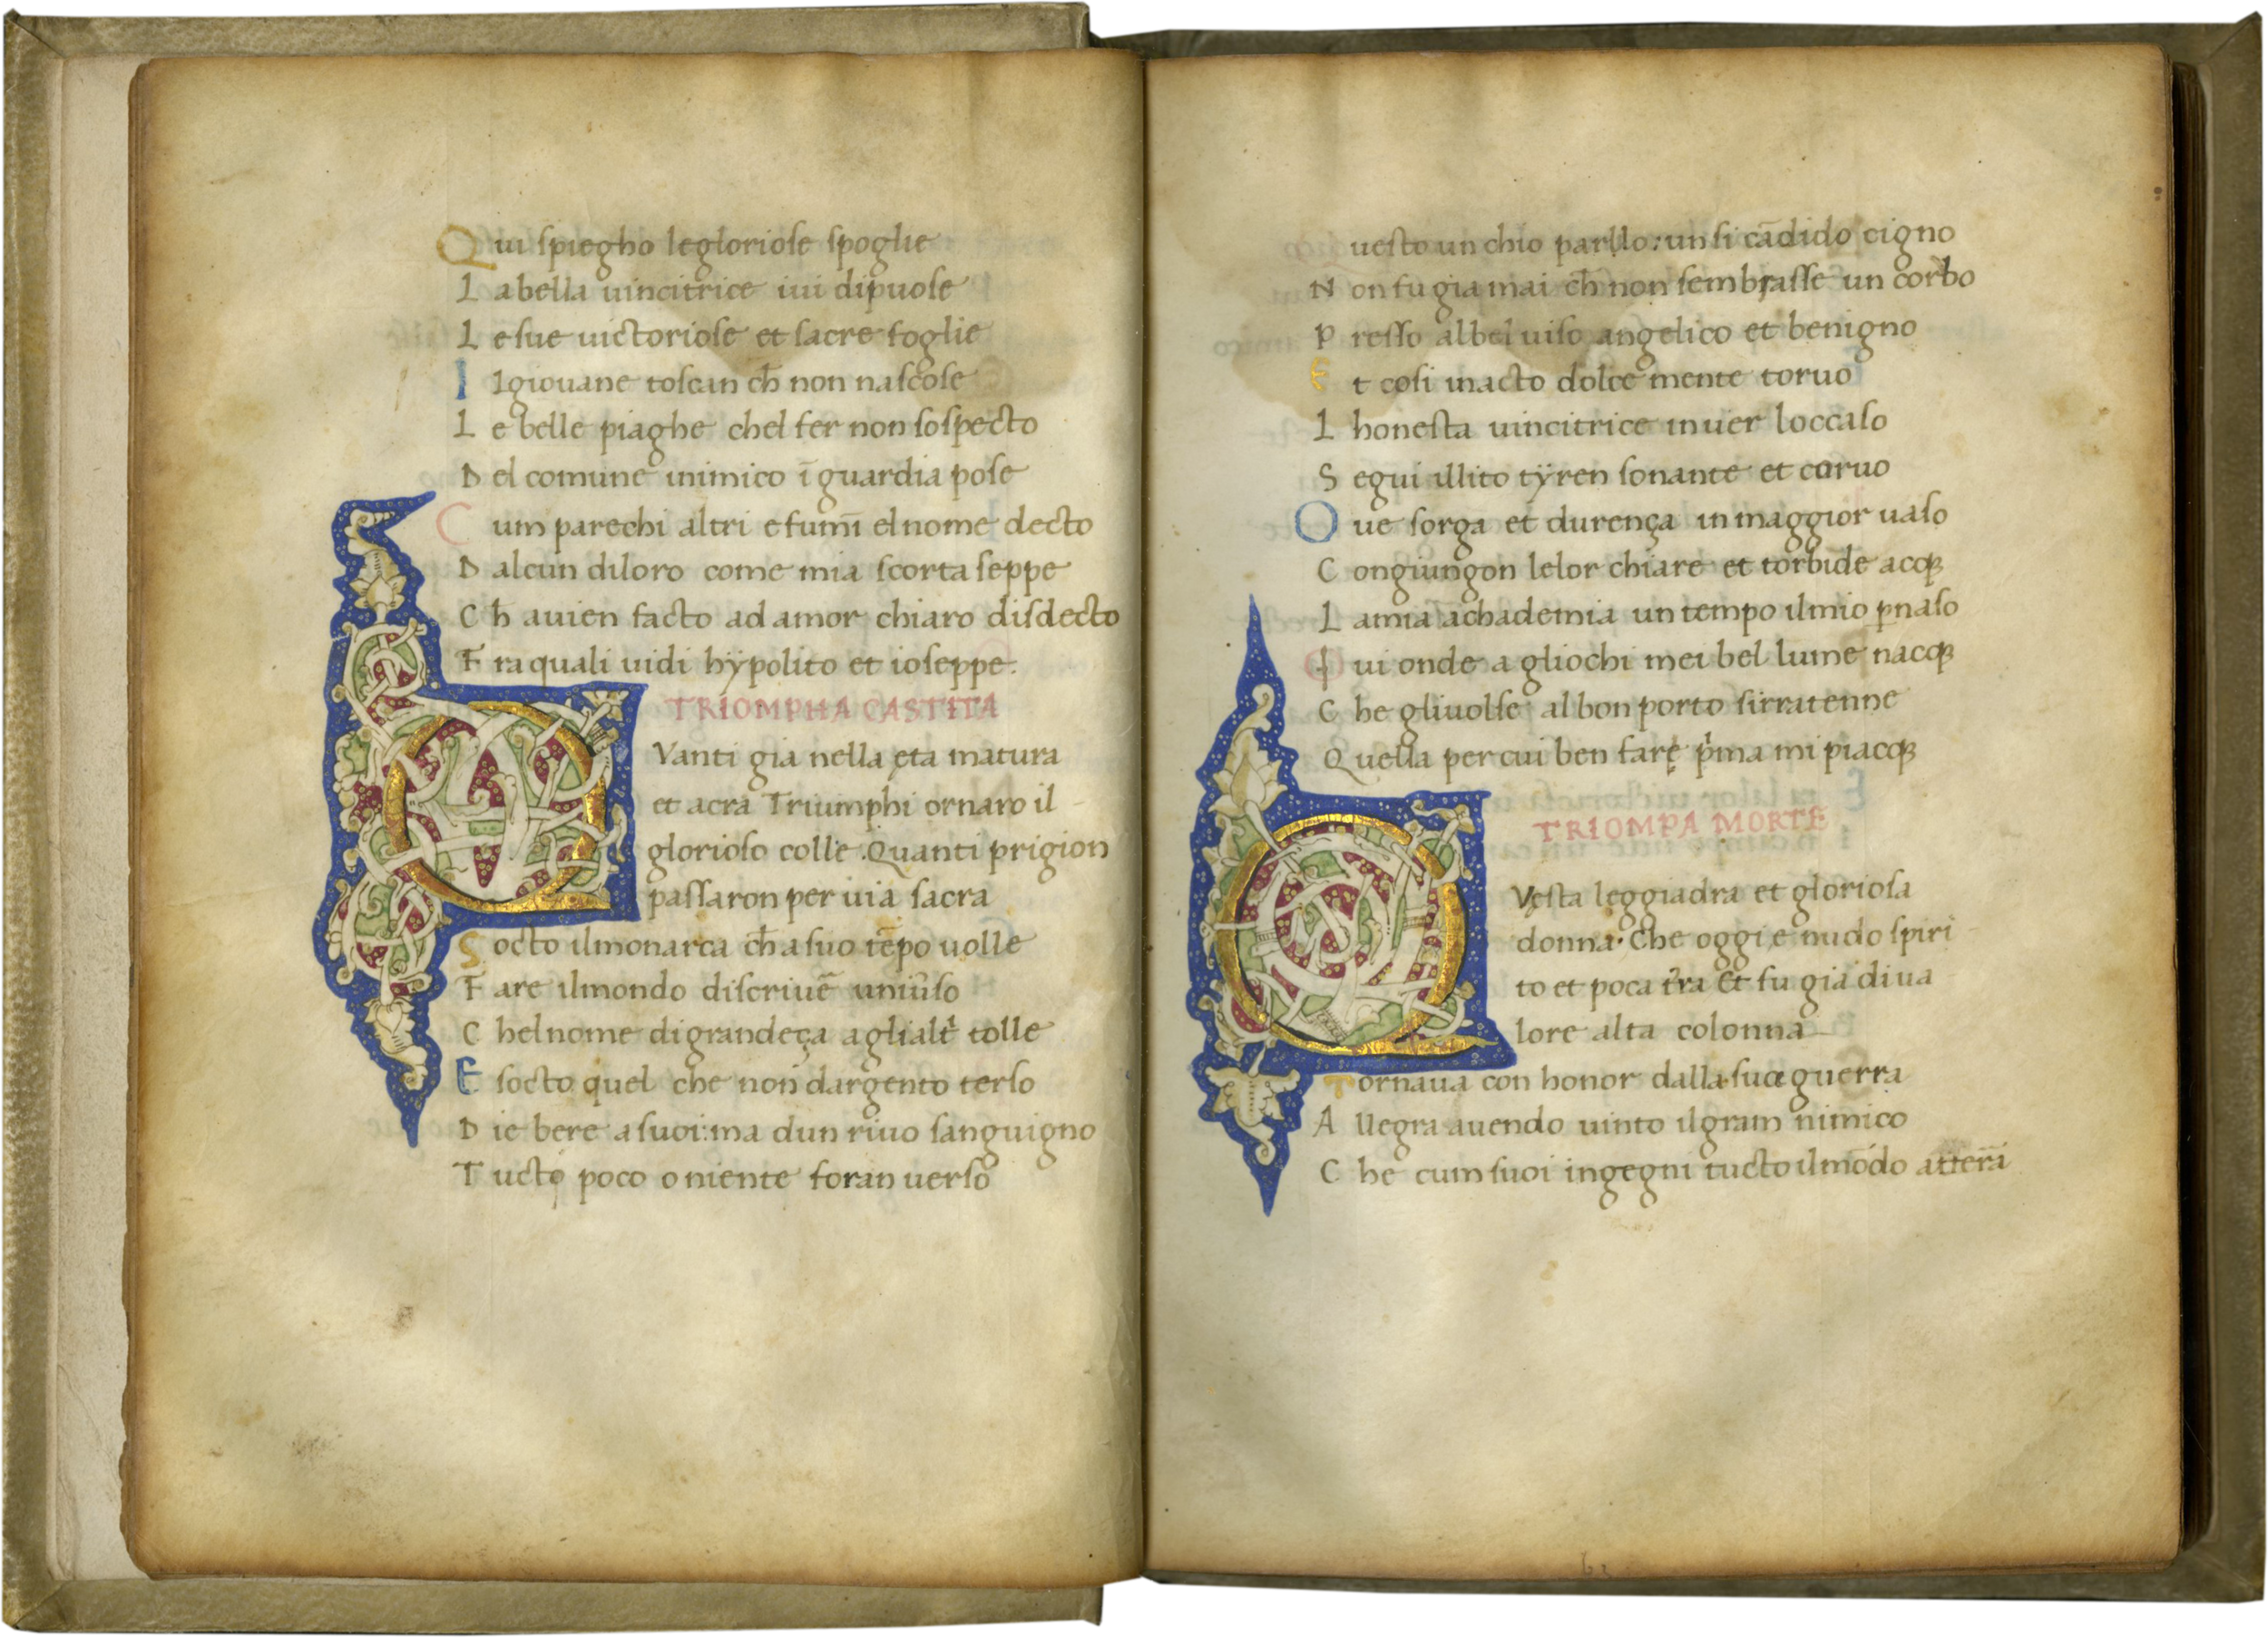 Qui spiegho legloriose spoglie
Labella uincitrice iui dipuose
Le sue uictoriose et sacre foglie
I lgiouane toscan ch̄ non nascose
Le belle piaghe chel fer non sospecto
Del comune inimico ī guardia pose
Cum parechi altri e fumī el nome decto
Dalcun diloro come mia scorta seppe
Ch̄ auien facto ad amor chiaro disdecto
Fra quali uidi hÿpolito et ioseppe.
TRIOMPHA CASTITA
QVanti gia nella ęta matura
et acra Triumphi ornaro il
glorioso colle. Quanti prigion
passaron per uia sacra
Socto ilmonarca ch̄ a suo tēpo uolle
Fare ilmondo discriuē uniũso
Chel nome di grandeça a glialt̃ tolle
E socto quel che non dargento terso
Die bere a suoi: ma dun riuo sanguigno
Tucto poco o niente foran uerso
uesto un chio parllo: un si cãdido cigno
Non fu gia mai ch̄ non sembrasse un corbo
Presso albel uiso angelico et benigno
Et cosi inacto dolce mente toruo
Lhonesta uincitrice inuer loccaso
Segui illito tÿren sonante et coruo
Oue sorga et durença in maggior uaso
Congiungon lelor chiare et torbide acq̃
La mia achademia un tempo ilmio p̱naso
Iui onde a gliochi mei bel lume nacq̃
Che gliuolse al bon porto sirratenne
Quella per cui ben farę p̃ma mi piacq̃
TRIOMPA MORTE
QVęsta leggiadra et gloriosa
donna. Che oggi ę nudo spiri
to et poca t̃ra Et fu gia di ua
lore alta colonna
Tornaua con honor dalla sua guerra
Allegra auendo uinto ilgram nimico
Che cum suoi ingegni tucto ilmõdo atterã
b2